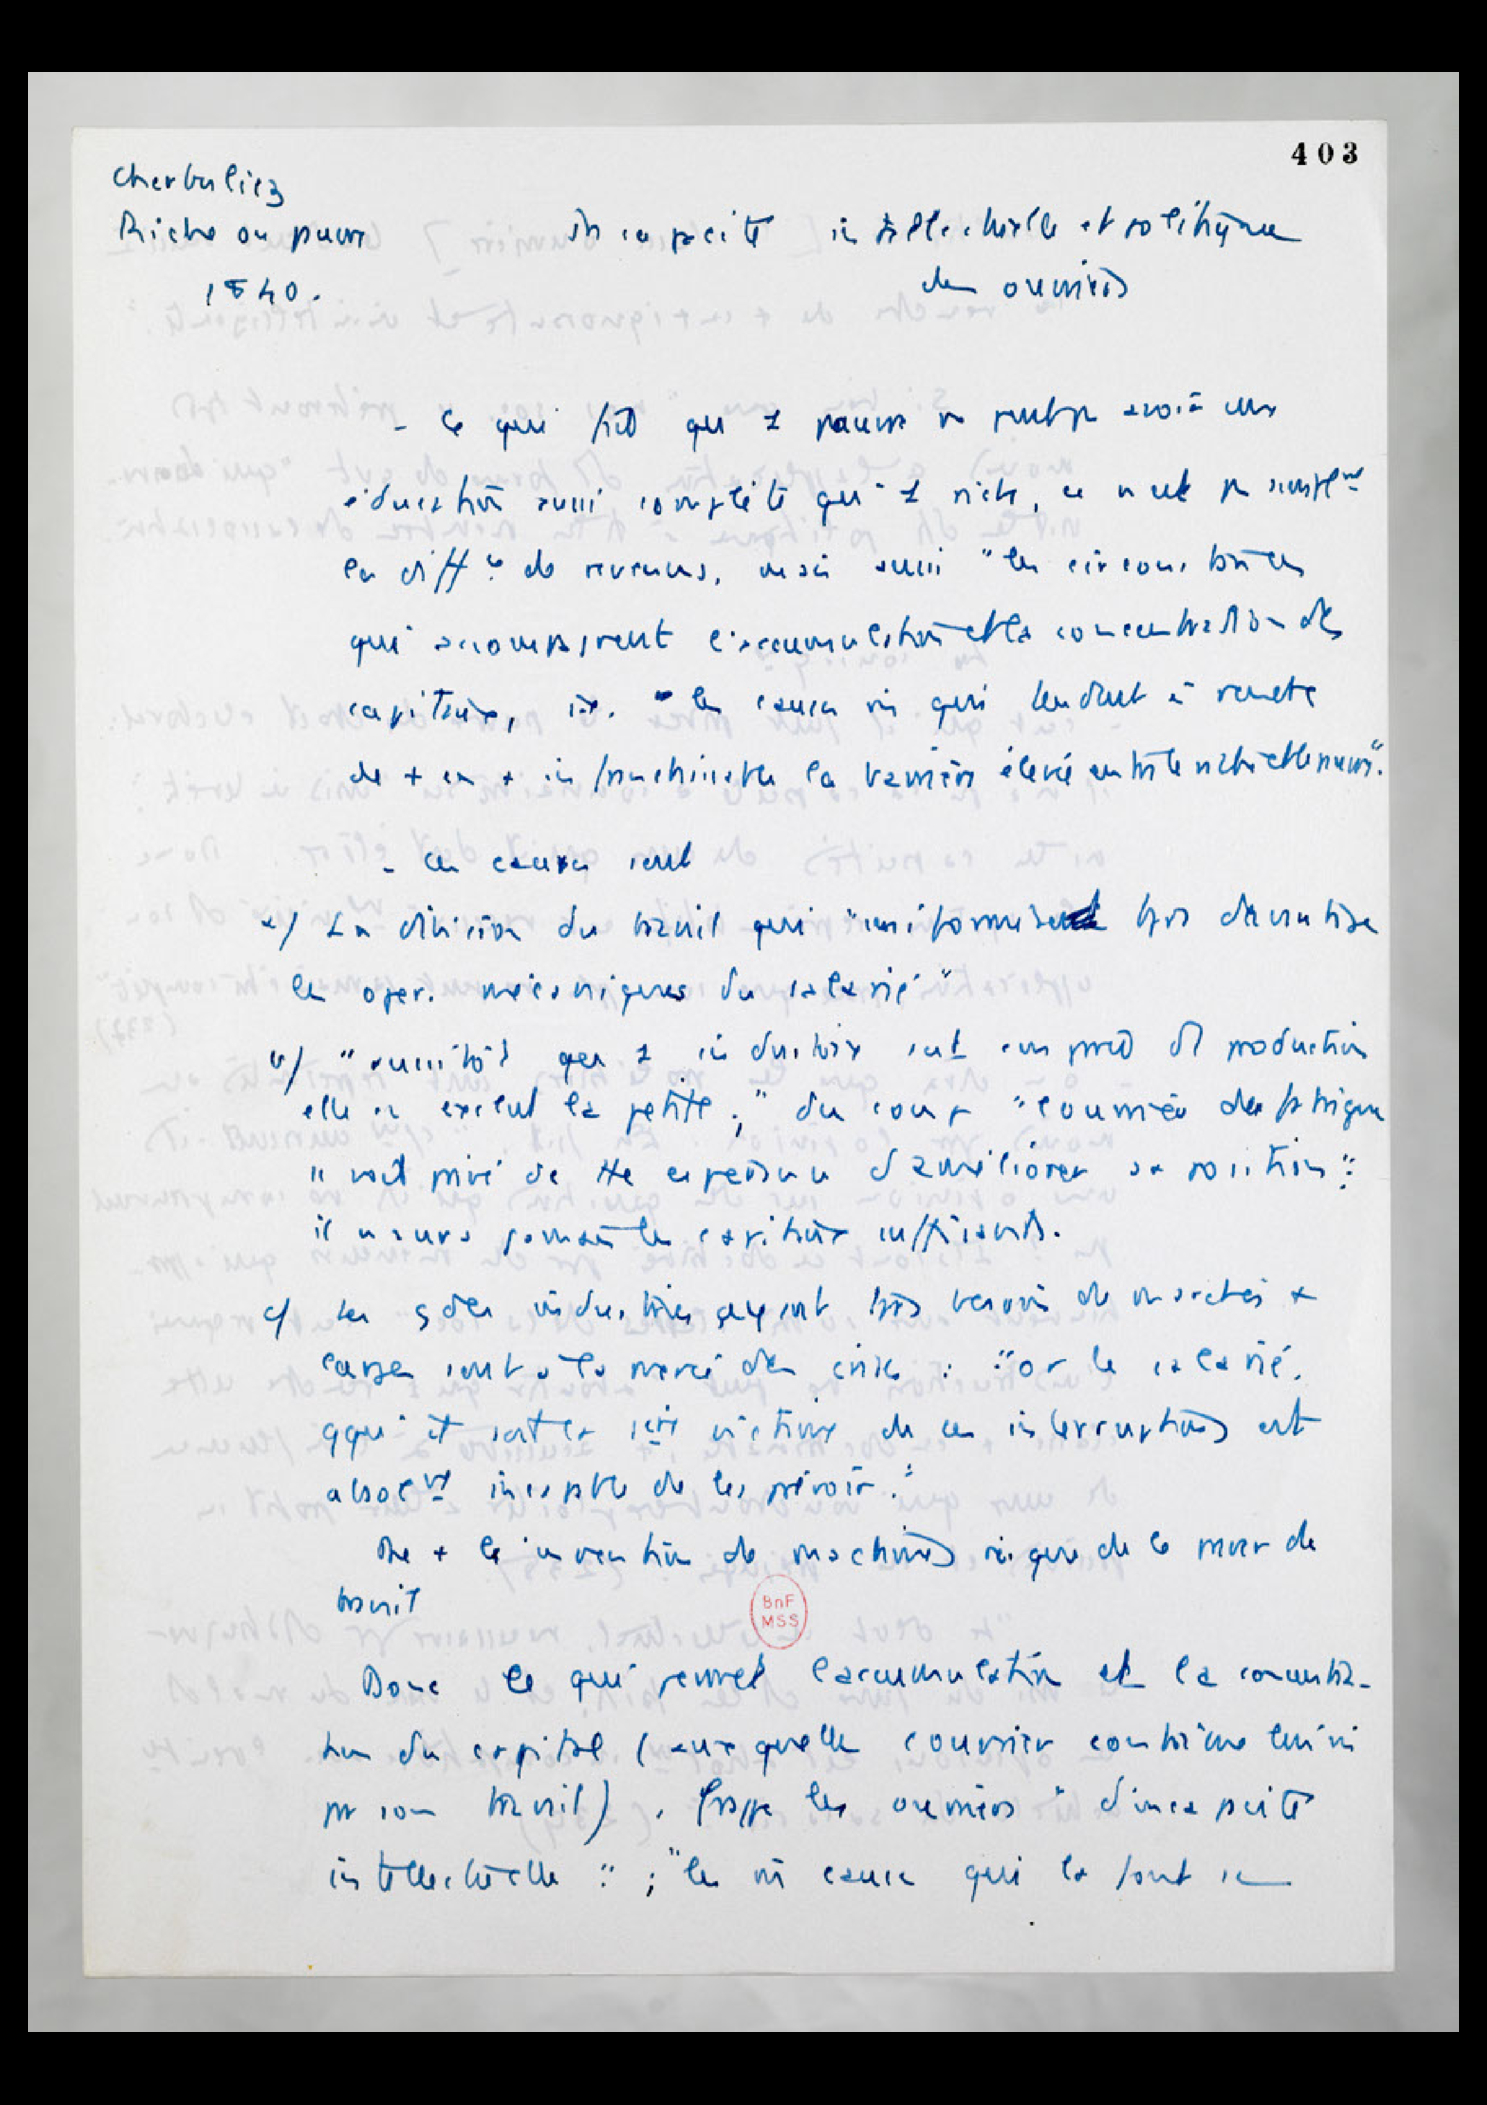 403
Cherbuliez
Riche ou pauvre
1840.
Incapacité intellectuelle et politique
des ouvriers
- Ce qui fait qu'1 pauvre ne peut pas avoir une
éducation aussi complète qu'1 riche, ce n'est pas simplemt
la diffce de revenus, mais aussi "les circonstances
qui accompagnent l'accumulation et la concentration des
capitaux, ie. "les causes qui tendent à rendre
de + en + infranchissable la barrière élevée entre le riche et le pauvre".
- ces causes sont
a/ La division du travail qui "uniformise tjrs davantage
les oper. mécaniques du salarié"
b/ "aussitôt que 1 industrie est en gd de production
elle en exclut la petite;" du coup "l'ouvrier des fabriques
se voit privé de tte espérance d'améliorer sa position":
il n'aura jamais les capitaux suffisants.
c/ les gdes industries ayant tjrs besoin de marchés +
larges sont à la merci des crises : "or le salarié,
qui est la 1ère victime de ces interruptions est
absolmt incapable de les prévoir."
De + l'invention de machines risque de le priver de
travail
BnF
MSS
Donc ce qui permet l'accumulation et la concentra-
tion du capital (auxquelles l'ouvrier contribue lui m
par son travail), frappe les ouvriers "d'incapacité
intellectuelle" ; "les m causes qui la font